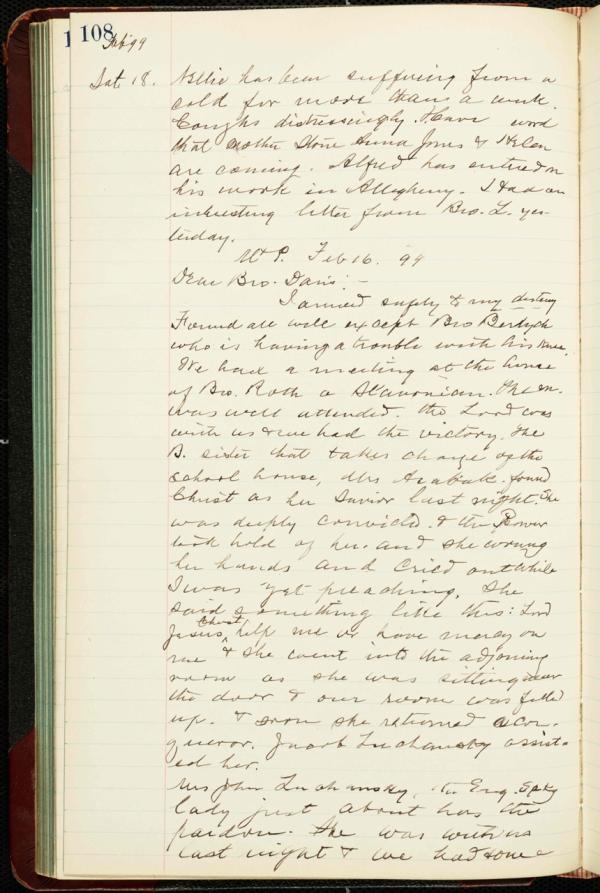 108
Feb 99
Sat 18. Nellie has been suffering from a
cold for more than a week.
Coughs distressingly. Have word
that Mother Stone Anna Jones & Helen
are coming. Alfred has entered on
his work in Allegheny. I had an
interesting letter from Bro. L. yes-
terday.
Mt P. Feb 16. 99
Dear Bro. Davis: -
I arrived safely to my destiny
Found all well except Bro
who is having a trouble with his knee.
We had a meeting at the house
of Bro. Roth a Slavonian. The m.
was well attended. The Lord was
with us & we had the victory. The
B. sister that takes charge of the
school house, Mrs found
Christ as her Savior last night. She
was deeply convicted. & the Power
took hold of her. and she wrung
her hands and cried out while
I was yet preaching. She
said something like this: Lord
Jesus Christ, help me or have mercy on
me & she went into the adjoining
room as she was sitting near
the door & our room was filled
up. & soon she returned a con-
queror. Jacob Luchansky assist-
ed her.
Mrs John Luchansky, the Eng. Spkg
lady just about has the
pardon. She was with us
last night & we had some